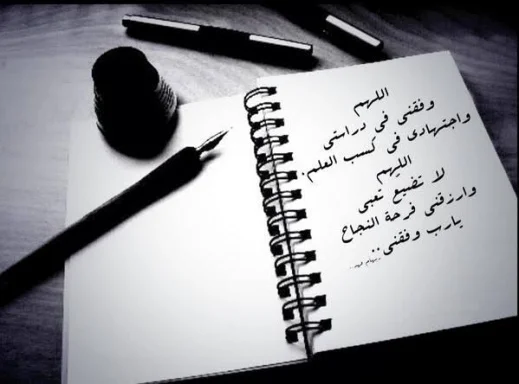 اللهم
وفقنى فى دراستى
واجتهادى فى كسب العلم.
اللهم
لا تضيع تعبى
وارزقنى فرحة النجاح
يارب وفقنى..